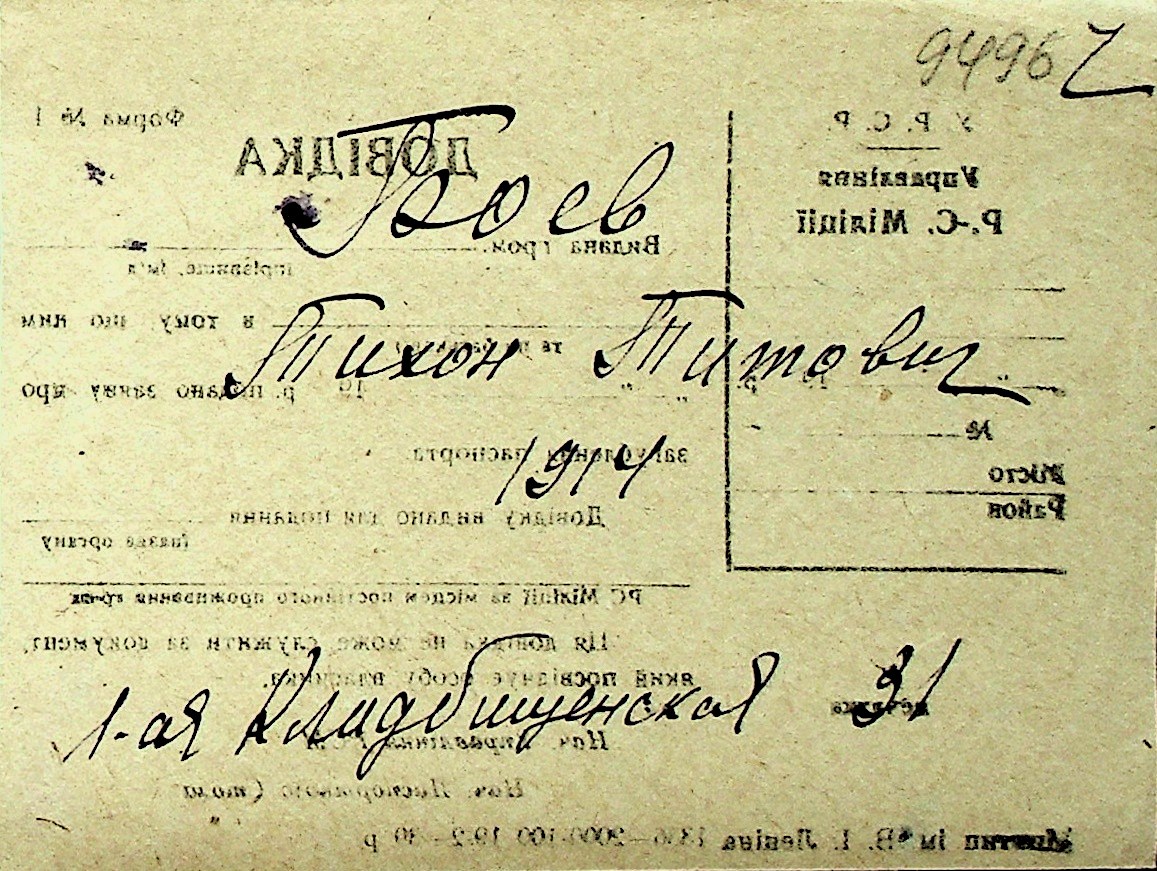 9496
Боев
Тихон Титович
1914
1-ая Кладбищенская 31
У. Р. С. Р.
Управління
Р.-С. Міліції
№
Місто
Район
Форма № 1
ДОВІДКА
Видана гром.
прізвище, ім'я
в тому, що ним
та по батькові
" " 19 р. подано заяву про
загублення паспорта.
Довідку видано для подання
(назва органу
РС Міліції за місцем постійного проживання гр-на
Ця довідка не може служити за документ,
який посвідчує особу власника.
Нач. Управління
Нач. Паспортного (стола
ім. В. І. Леніна